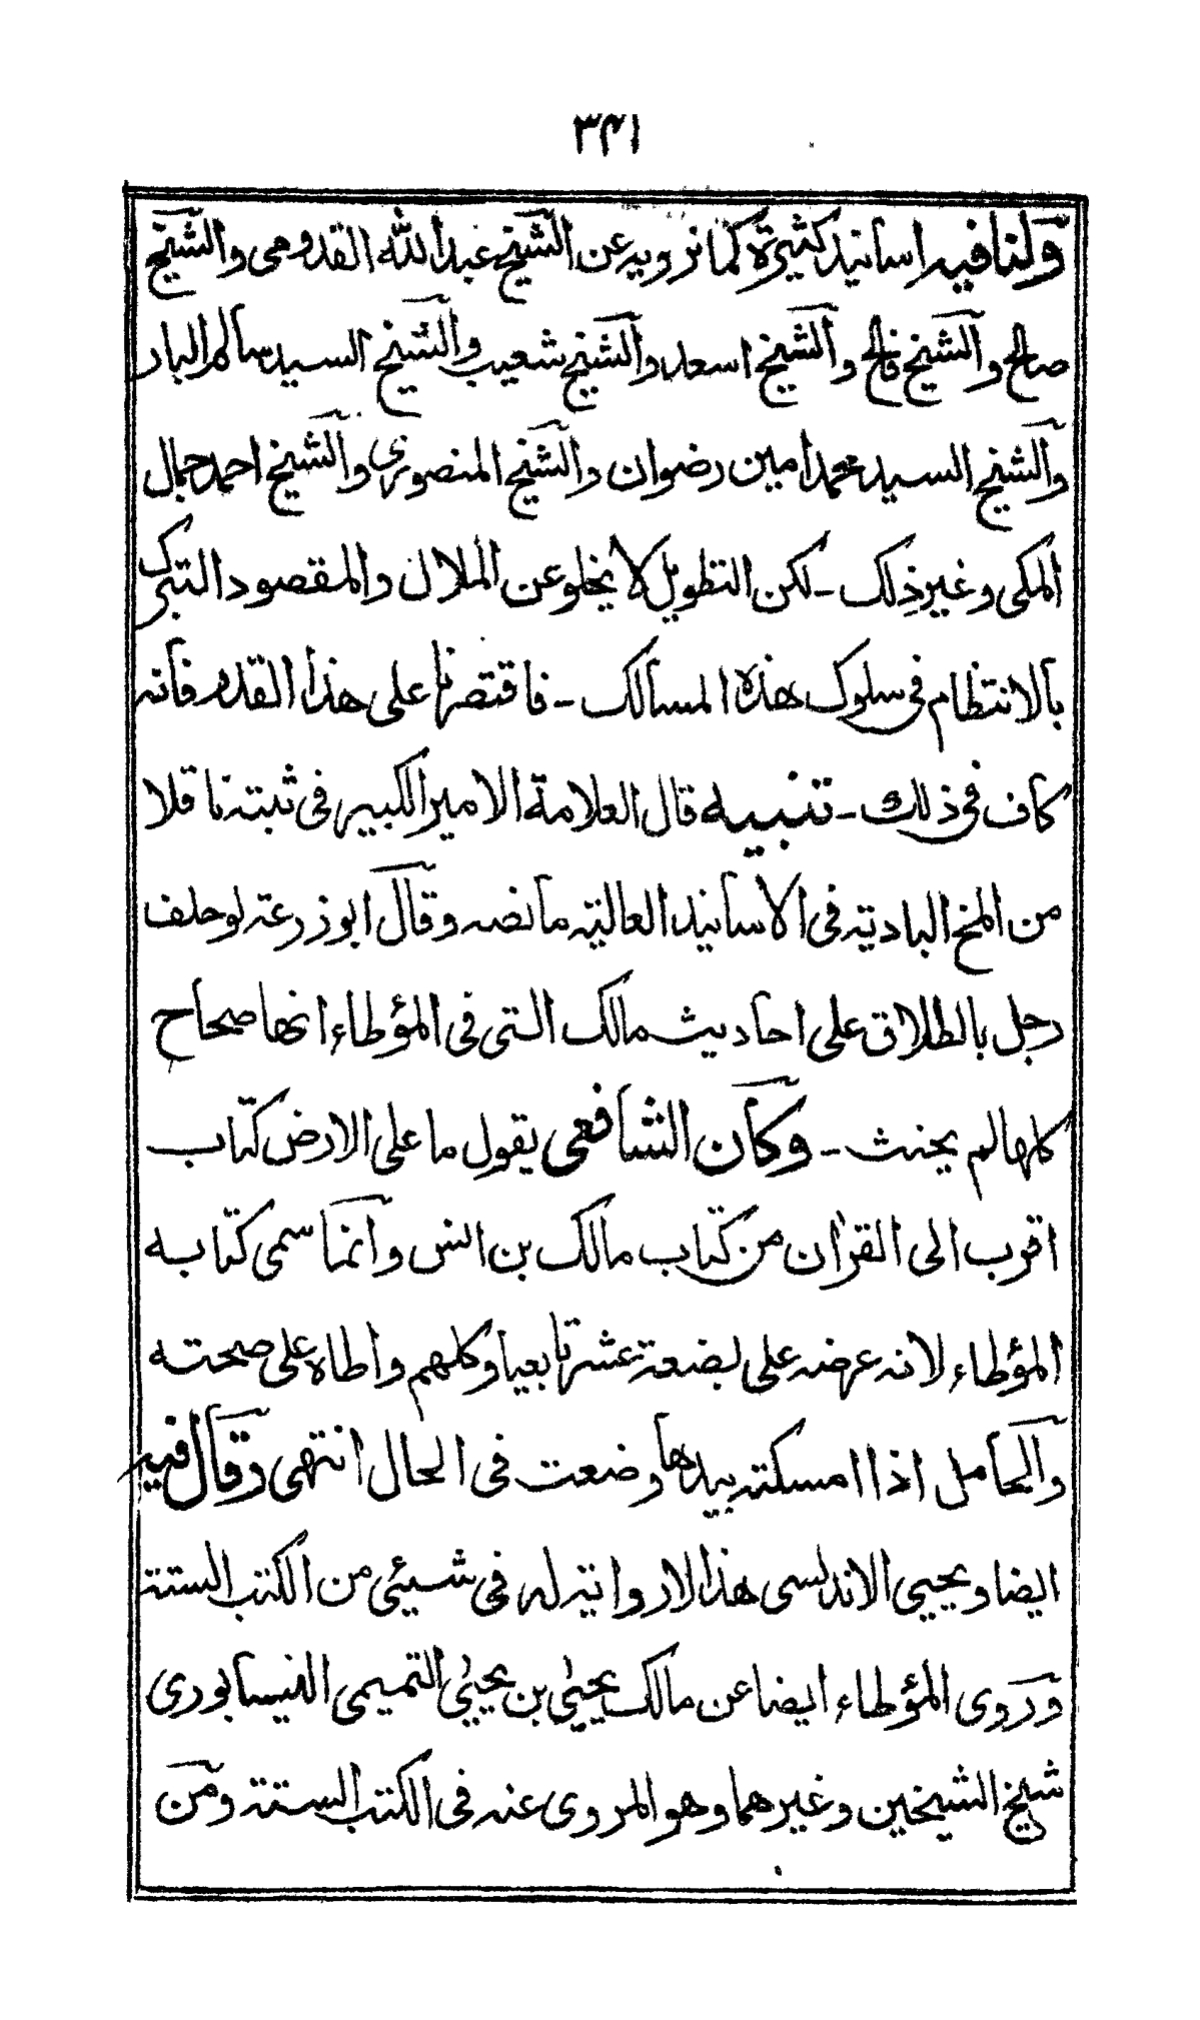 ٣٤١
ولنا فيه اسانيد كثيرة كما نرويه عن الشيخ عبدالله القدومى والشيخ
صالح والشيخ فالح والشيخ اسعد والشيخ شعيب والشيخ السيد سالم البار
والشيخ السيد محمد امين رضوان والشيخ المنصورى والشيخ احمد جمال
المكى وغير ذلك - لكن التطويل لا يخلو عن الملال والمقصود التبرك
بالانتظام فى سلوك هذه المسالك - فاقتصرنا على هذا القدر فانه
كاف فى ذلك - تنبيه قال العلامة الامير الكبير فى ثبته ناقلا
من المنح البادية فى الاسانيد العالية ما نصه وقال ابوزرعة لو حلف
رجل بالطلاق على احاديث مالك التى فى المؤطاء انها صحاح
كلها لم يحنث - وكان الشافعى يقول ما على الارض كتاب
اقرب الى القران من كتاب مالك بن انس وانما سمى كتابه
المؤطاء لانه عرضه على بضعة عشر تابعيا وكلهم واطاه على صحته
والحامل اذا امسكته بيدها وضعت فى الحال انتهى وقال فيه
ايضا ويحيى الاندلسى هذا لا رواية له فى شيئى من الكتب الستة
وروى المؤطاء ايضا عن مالك يحيى بن يحيى التميمى النيسابورى
شيخ الشيخين وغيرهما وهو المروى عنه فى الكتب الستة ومن